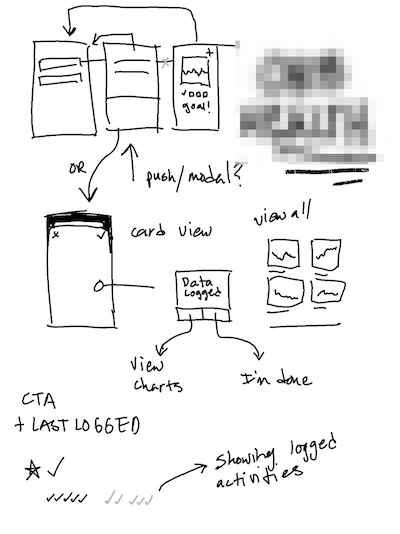 +
goal!
OR
push/modal?
card view
view all
x
Data
Logged
View
charts
I'm done
CTA
+ LAST LOGGED
Showing logged
activities